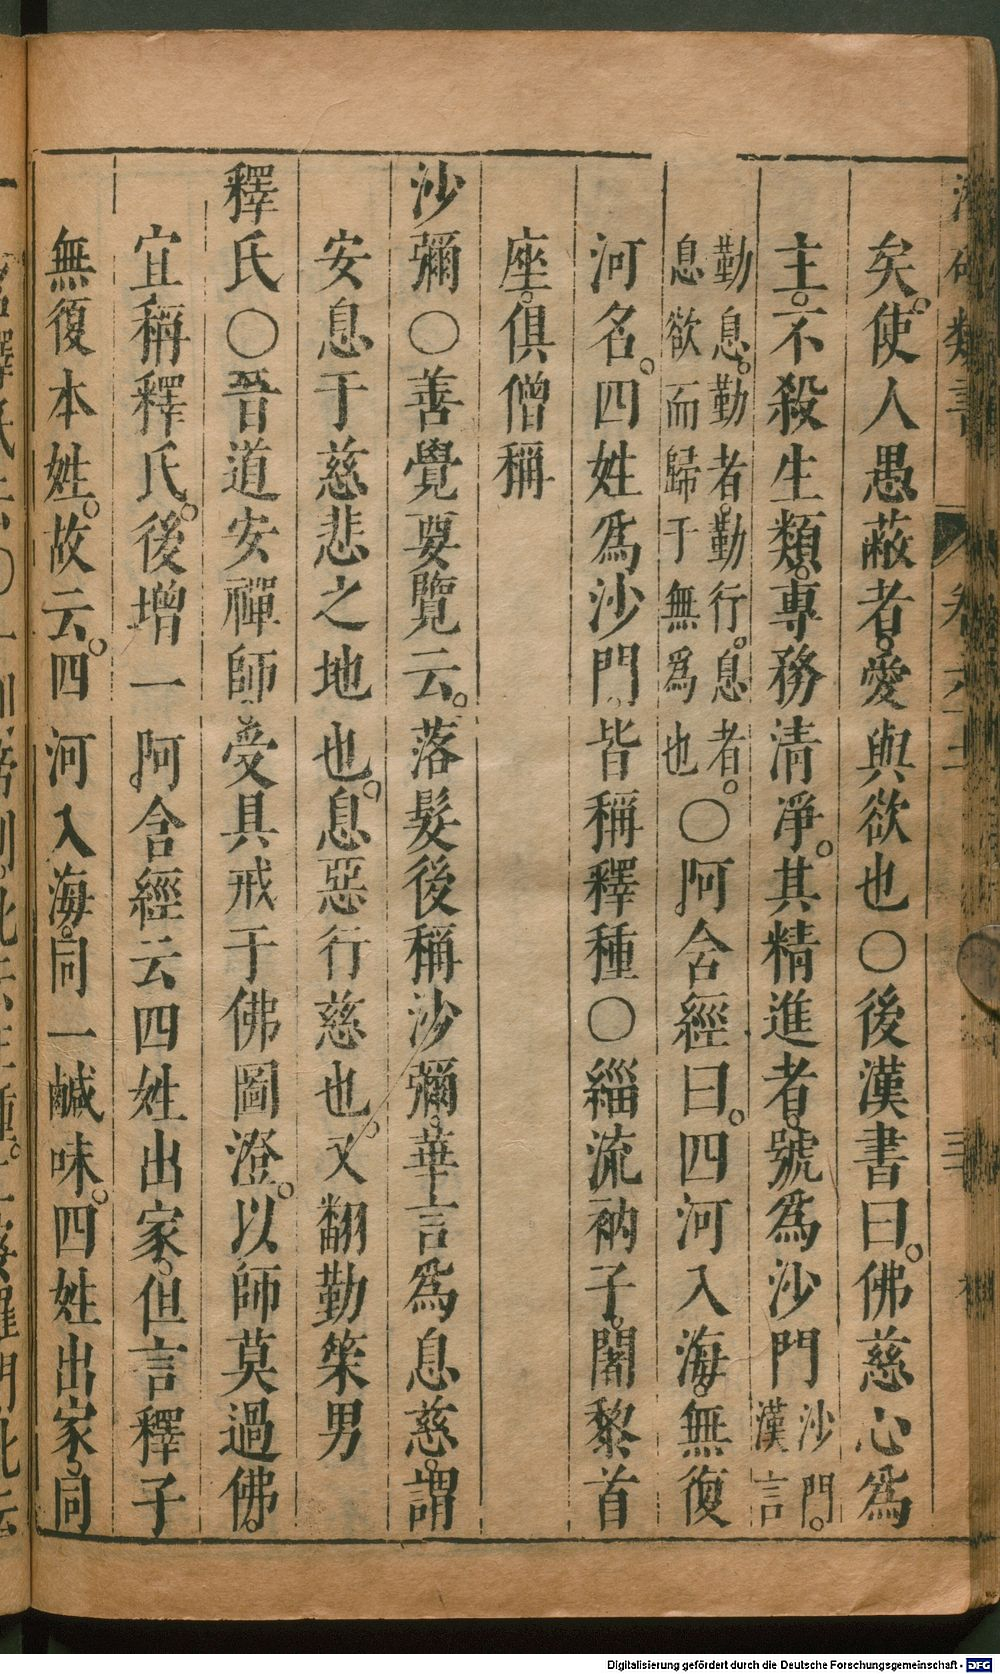 矣。使人愚蔽者。愛與欲也〇後漢書曰。佛慈心爲
主。不殺生類。專務清淨。其精進者。號爲沙門沙門。漢言
勤息。勤者。勤行。息者。息欲而歸于無爲也〇阿含經曰。四河入海。無復
河名。四姓爲沙門。皆稱釋種〇緇流衲子。闍黎首
座。俱僧稱
沙彌〇善覺要覽云。落髮後稱沙彌。華言爲息慈。謂
安息于慈悲之地也。息惡行慈也。又翻勤策男
釋氏〇晉道安禪師。受具戒于佛圖澄。以師莫過佛。
宜稱釋氏。後增一阿含經云四姓出家。但言釋子
無復本姓。故云。四河入海。同一鹹味。四姓出家。同
Digitalisierung gefördert durch die Deutsche Forschungsgemeinschaft - DFG